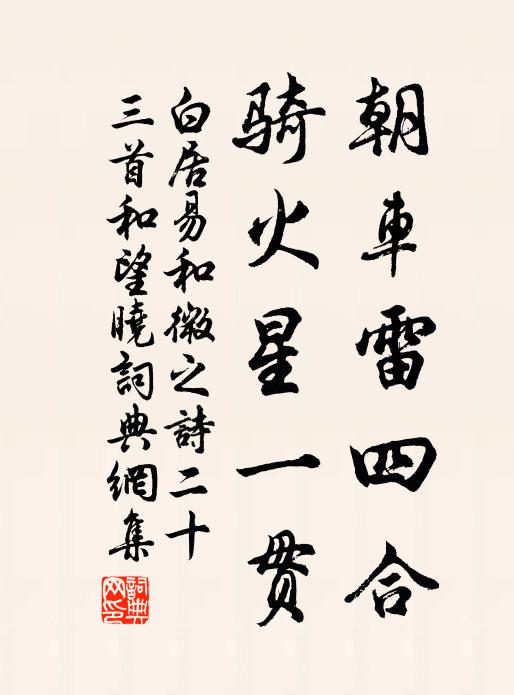 朝車雷四合
騎火星一貫
白居易和微之詩二十
三首和望曉詞典網集